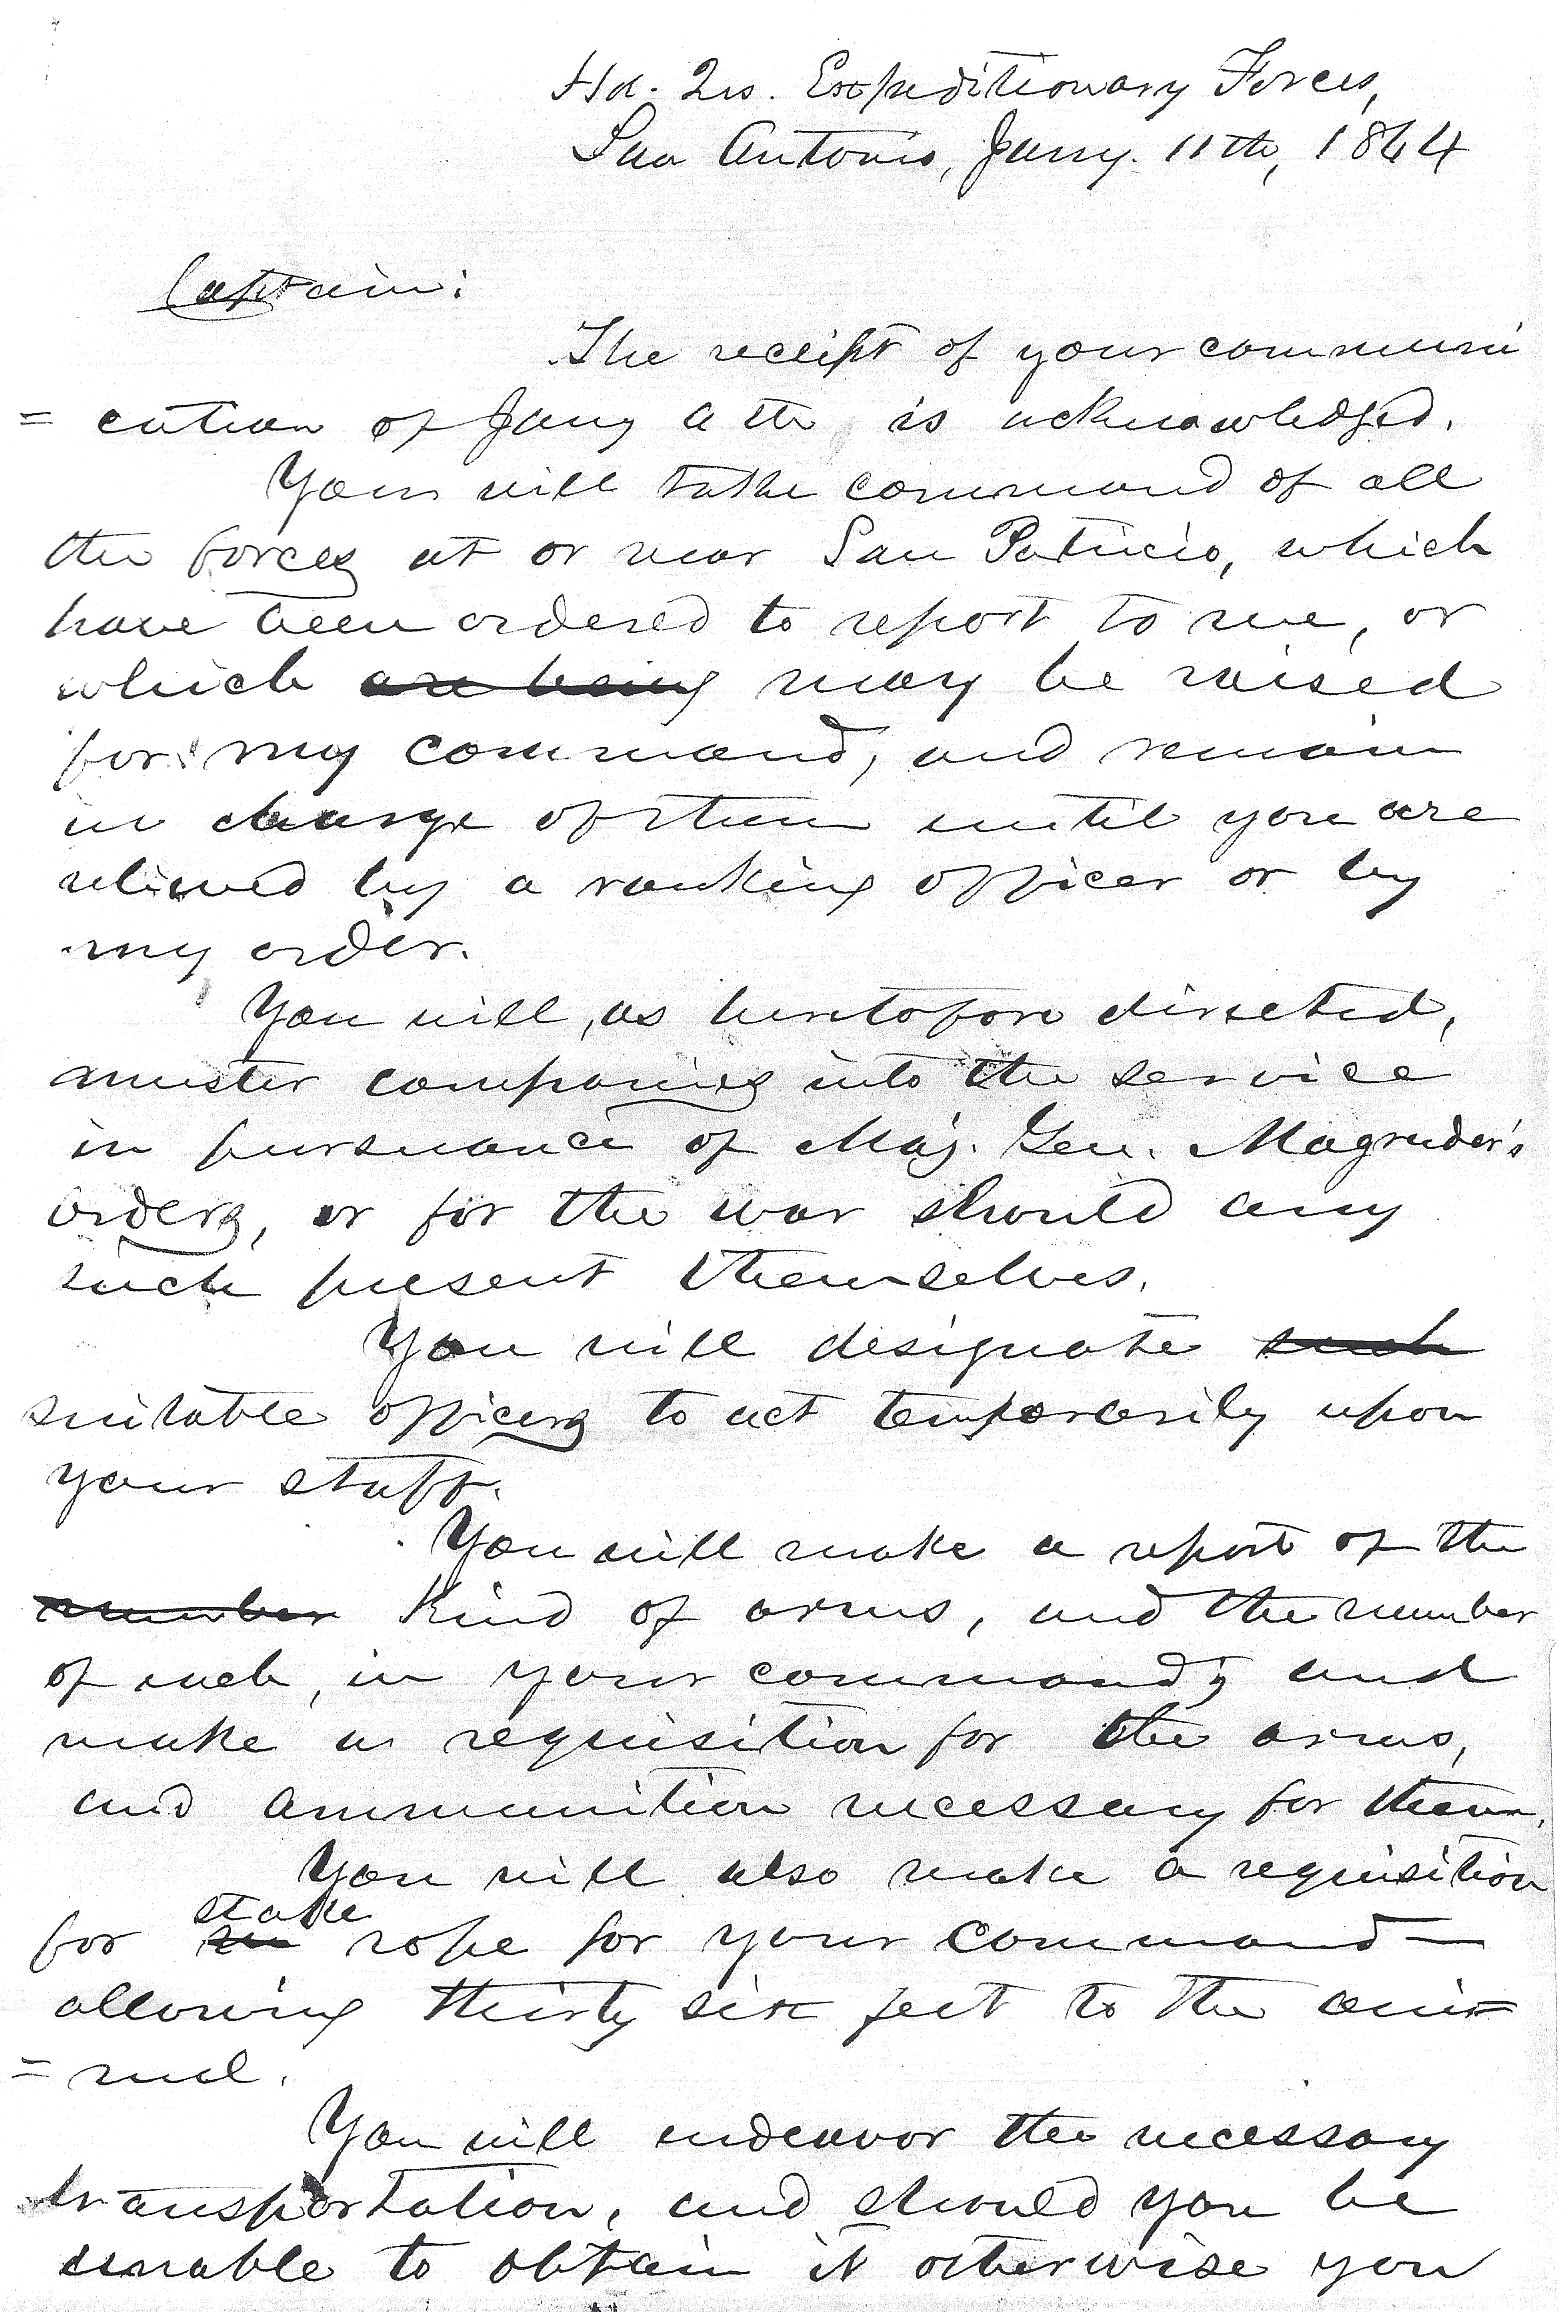 Hd. Qrs. Expeditionary Forces,
San Antonio, Jany. 11th, 1864
Captain:
The receipt of your communi
= cation of Jany 6th is acknowledged.
You will take command of all
the forces at or near San Patricio, which
have been ordered to report to me, or
which are being may be raised
for my command, and remain
in charge of them until you are
relieved by a ranking officer or by
my order.
You will, as heretofore directed,
muster companies into the service
in pursuance of Maj. Gen. Magruder's
orders, or for the war should any
such present themselves.
You will designate such
suitable officers to act temporarily upon
your staff.
You will make a report of the
number kind of arms, and the number
of each, in your command; and
make a requisition for the arms,
and ammunition necessary for them.
You will also make a requisition
stake
for rope for your command —
allowing thirty six feet to the ani=
= mal.
You will endeavor the necessary
transportation, and should you be
unable to obtain it otherwise you